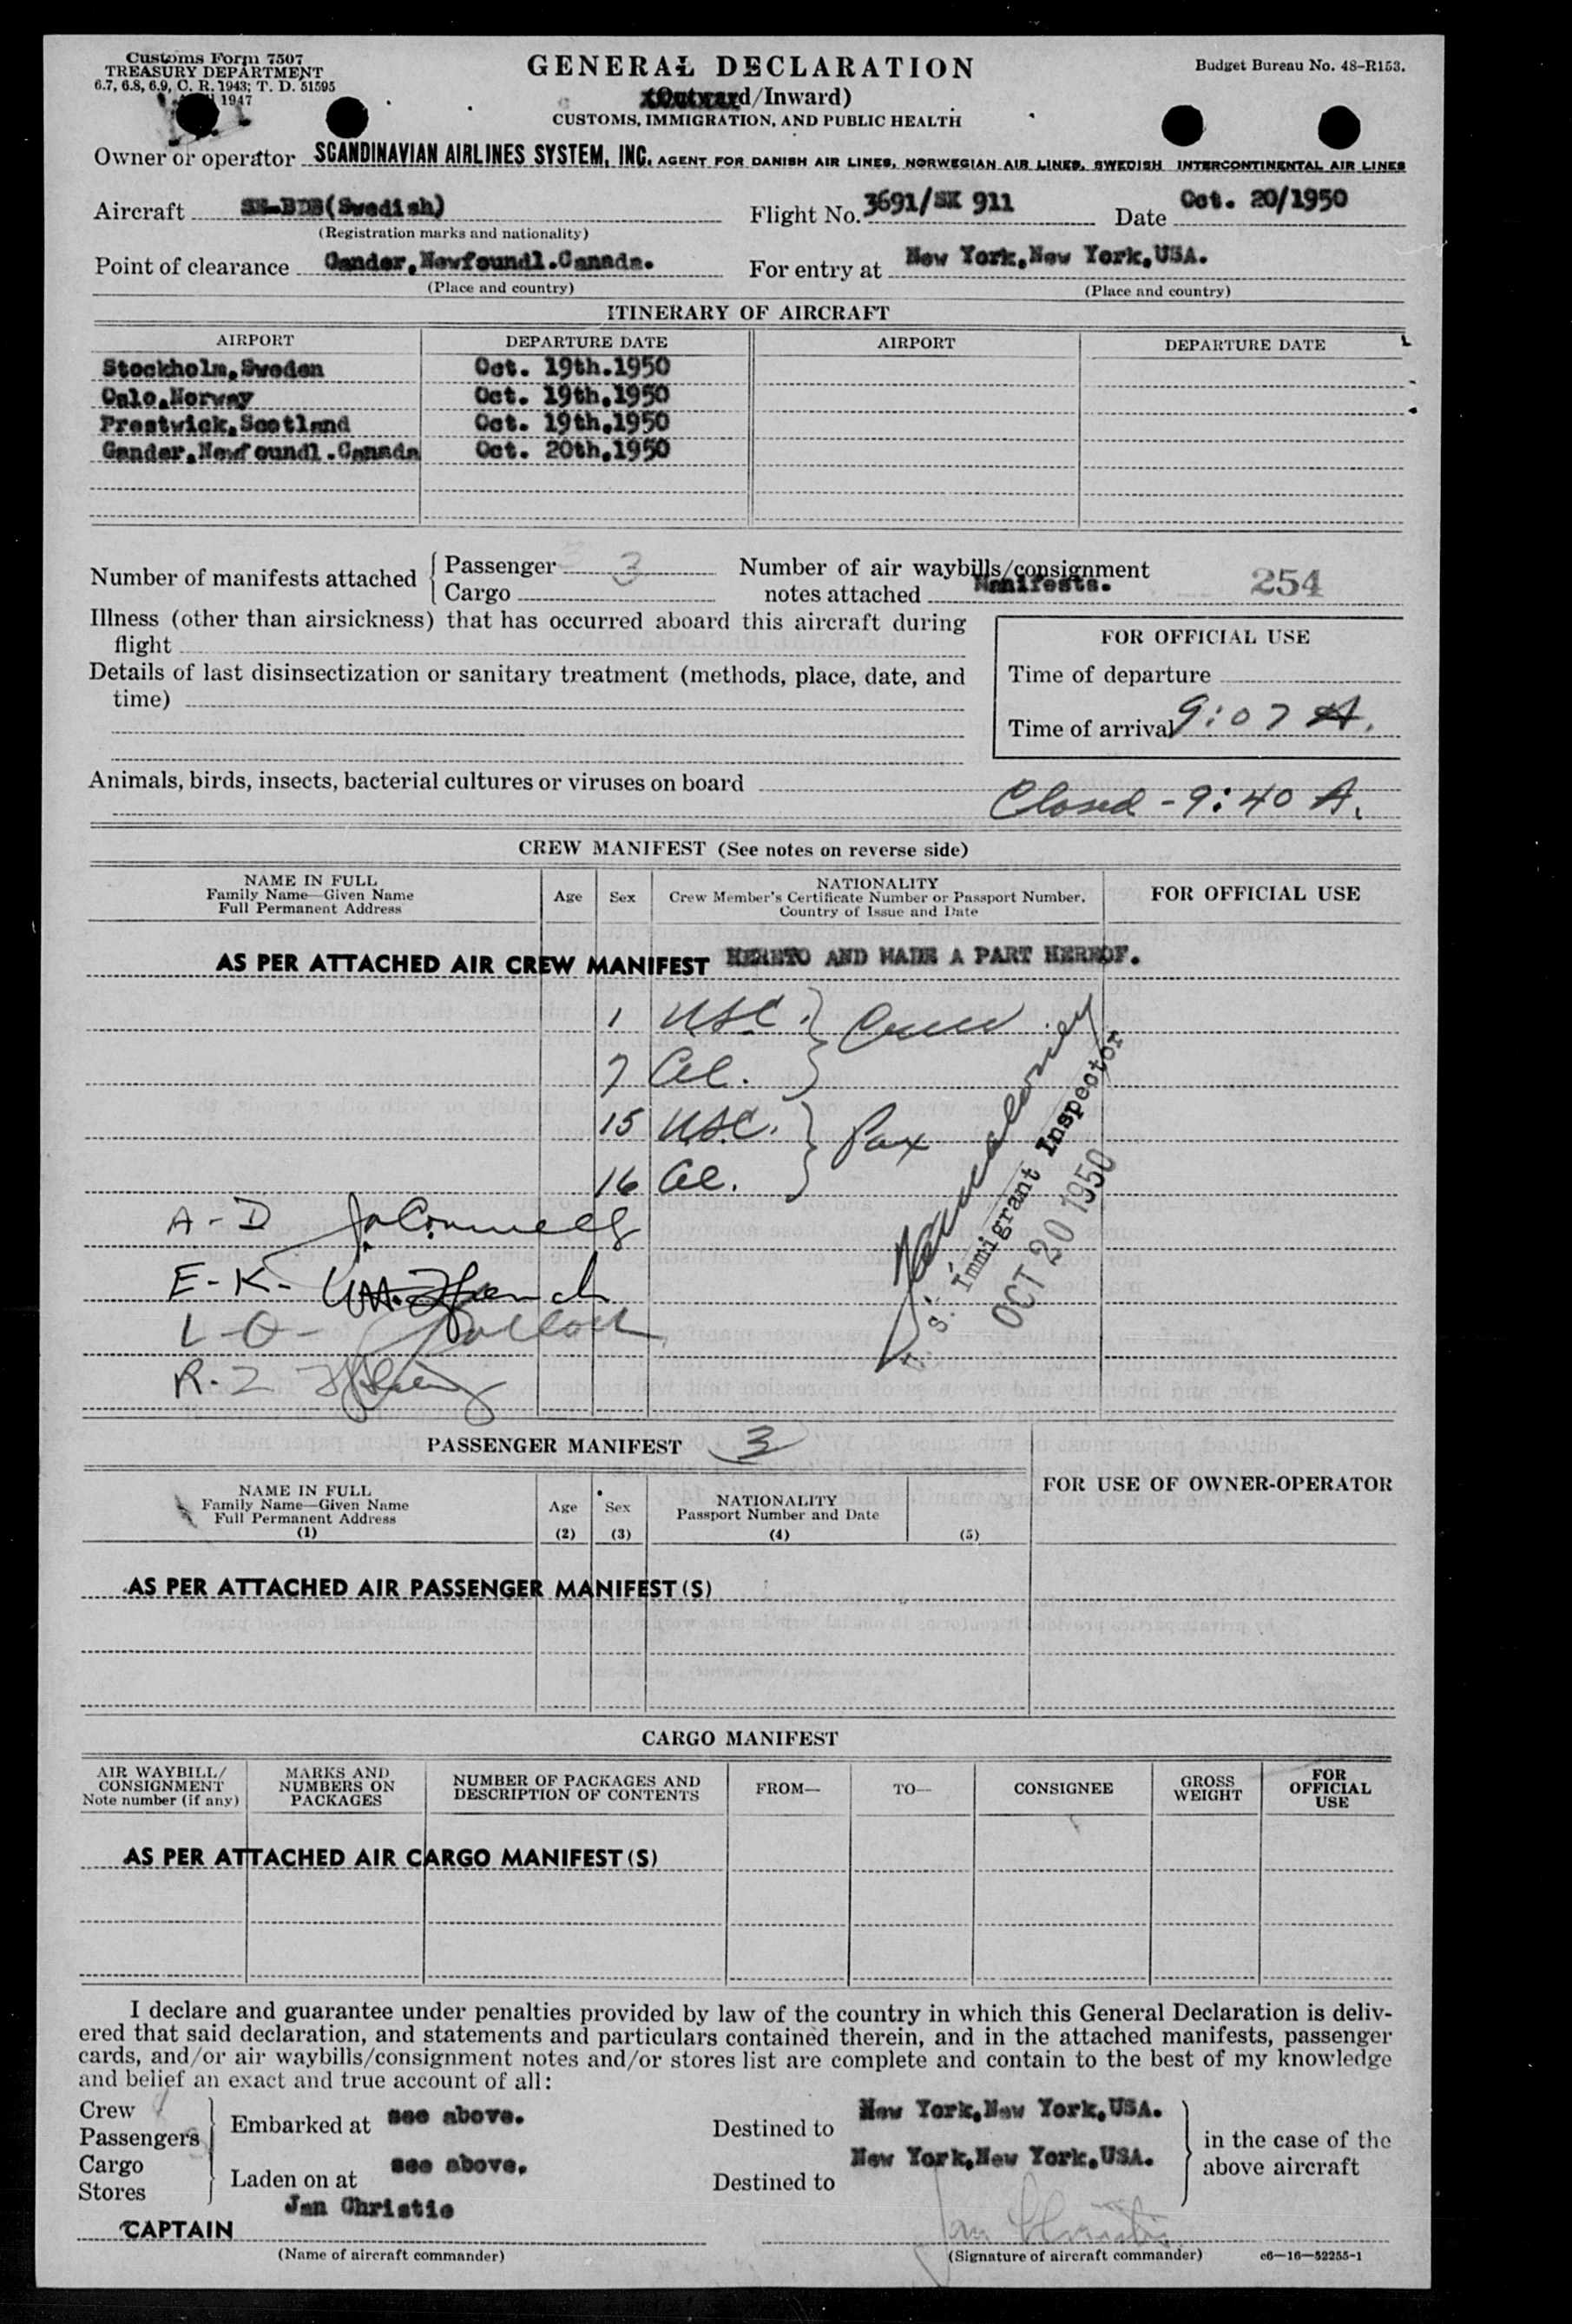 Customs Form 7507
TREASURY DEPARTMENT
6.7, 6.8, 6.9, C. R. 1943; T. D. 51595
1947
GENERAL DECLARATION
(Outward/Inward)
CUSTOMS, IMMIGRATION, AND PUBLIC HEALTH
Budget Bureau No. 48-R153.
Owner or operator SCANDINAVIAN AIRLINES SYSTEM, INC. AGENT FOR DANISH AIR LINES, NORWEGIAN AIR LINES, SWEDISH INTERCONTINENTAL AIR LINES
Aircraft SE-BDB(Swedish) Flight No. 3691/SK 911 Date Oct. 20/1950
(Registration marks and nationality)
Point of clearance Gander,Newfoundl.Canada. For entry at New York,New York,USA.
(Place and country) (Place and country)
ITINERARY OF AIRCRAFT
AIRPORT DEPARTURE DATE AIRPORT DEPARTURE DATE
Stockholm,Sweden Oct. 19th.1950
Oslo,Norway Oct. 19th,1950
Prestwick,Scotland Oct. 19th,1950
Gander,Newfoundl.Canada Oct. 20th,1950
Number of manifests attached { Passenger 3
Cargo
Number of air waybills/consignment
notes attached Manifests. 254
Illness (other than airsickness) that has occurred aboard this aircraft during
flight
Details of last disinsectization or sanitary treatment (methods, place, date, and
time)
FOR OFFICIAL USE
Time of departure
Time of arrival 9:07 A.
Animals, birds, insects, bacterial cultures or viruses on board
Closed - 9:40 A.
CREW MANIFEST (See notes on reverse side)
NAME IN FULL
Family Name—Given Name
Full Permanent Address
Age
Sex
NATIONALITY
Crew Member's Certificate Number or Passport Number,
Country of Issue and Date
FOR OFFICIAL USE
AS PER ATTACHED AIR CREW MANIFEST HERETO AND MADE A PART HEREOF.
1 USC. } Crew
7 Al.
15 USC. } Pax
16 Al.
A-D
E-K-
L-O-
R-Z
S. Immigrant Inspector
OCT 20 1950
PASSENGER MANIFEST 3
NAME IN FULL
Family Name—Given Name
Full Permanent Address
(1)
Age
(2)
Sex
(3)
NATIONALITY
Passport Number and Date
(4)
(5)
FOR USE OF OWNER-OPERATOR
AS PER ATTACHED AIR PASSENGER MANIFEST(S)
CARGO MANIFEST
AIR WAYBILL/
CONSIGNMENT
Note number (if any)
MARKS AND
NUMBERS ON
PACKAGES
NUMBER OF PACKAGES AND
DESCRIPTION OF CONTENTS
FROM—
TO—
CONSIGNEE
GROSS
WEIGHT
FOR
OFFICIAL
USE
AS PER ATTACHED AIR CARGO MANIFEST(S)
I declare and guarantee under penalties provided by law of the country in which this General Declaration is deliv-
ered that said declaration, and statements and particulars contained therein, and in the attached manifests, passenger
cards, and/or air waybills/consignment notes and/or stores list are complete and contain to the best of my knowledge
and belief an exact and true account of all:
Crew
Passengers } Embarked at see above. Destined to New York,New York,USA.
Cargo
Stores } Laden on at see above. Destined to New York,New York,USA.
in the case of the
above aircraft
Jan Christie
CAPTAIN Jan Christie
(Name of aircraft commander) (Signature of aircraft commander) c6—16—52255-1